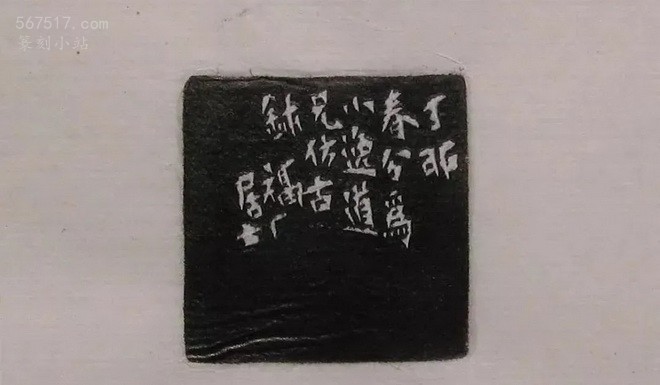 567517.com
篆刻小站
丁卯
春分爲
小逸道
兄仿古
鉨福厂
居士